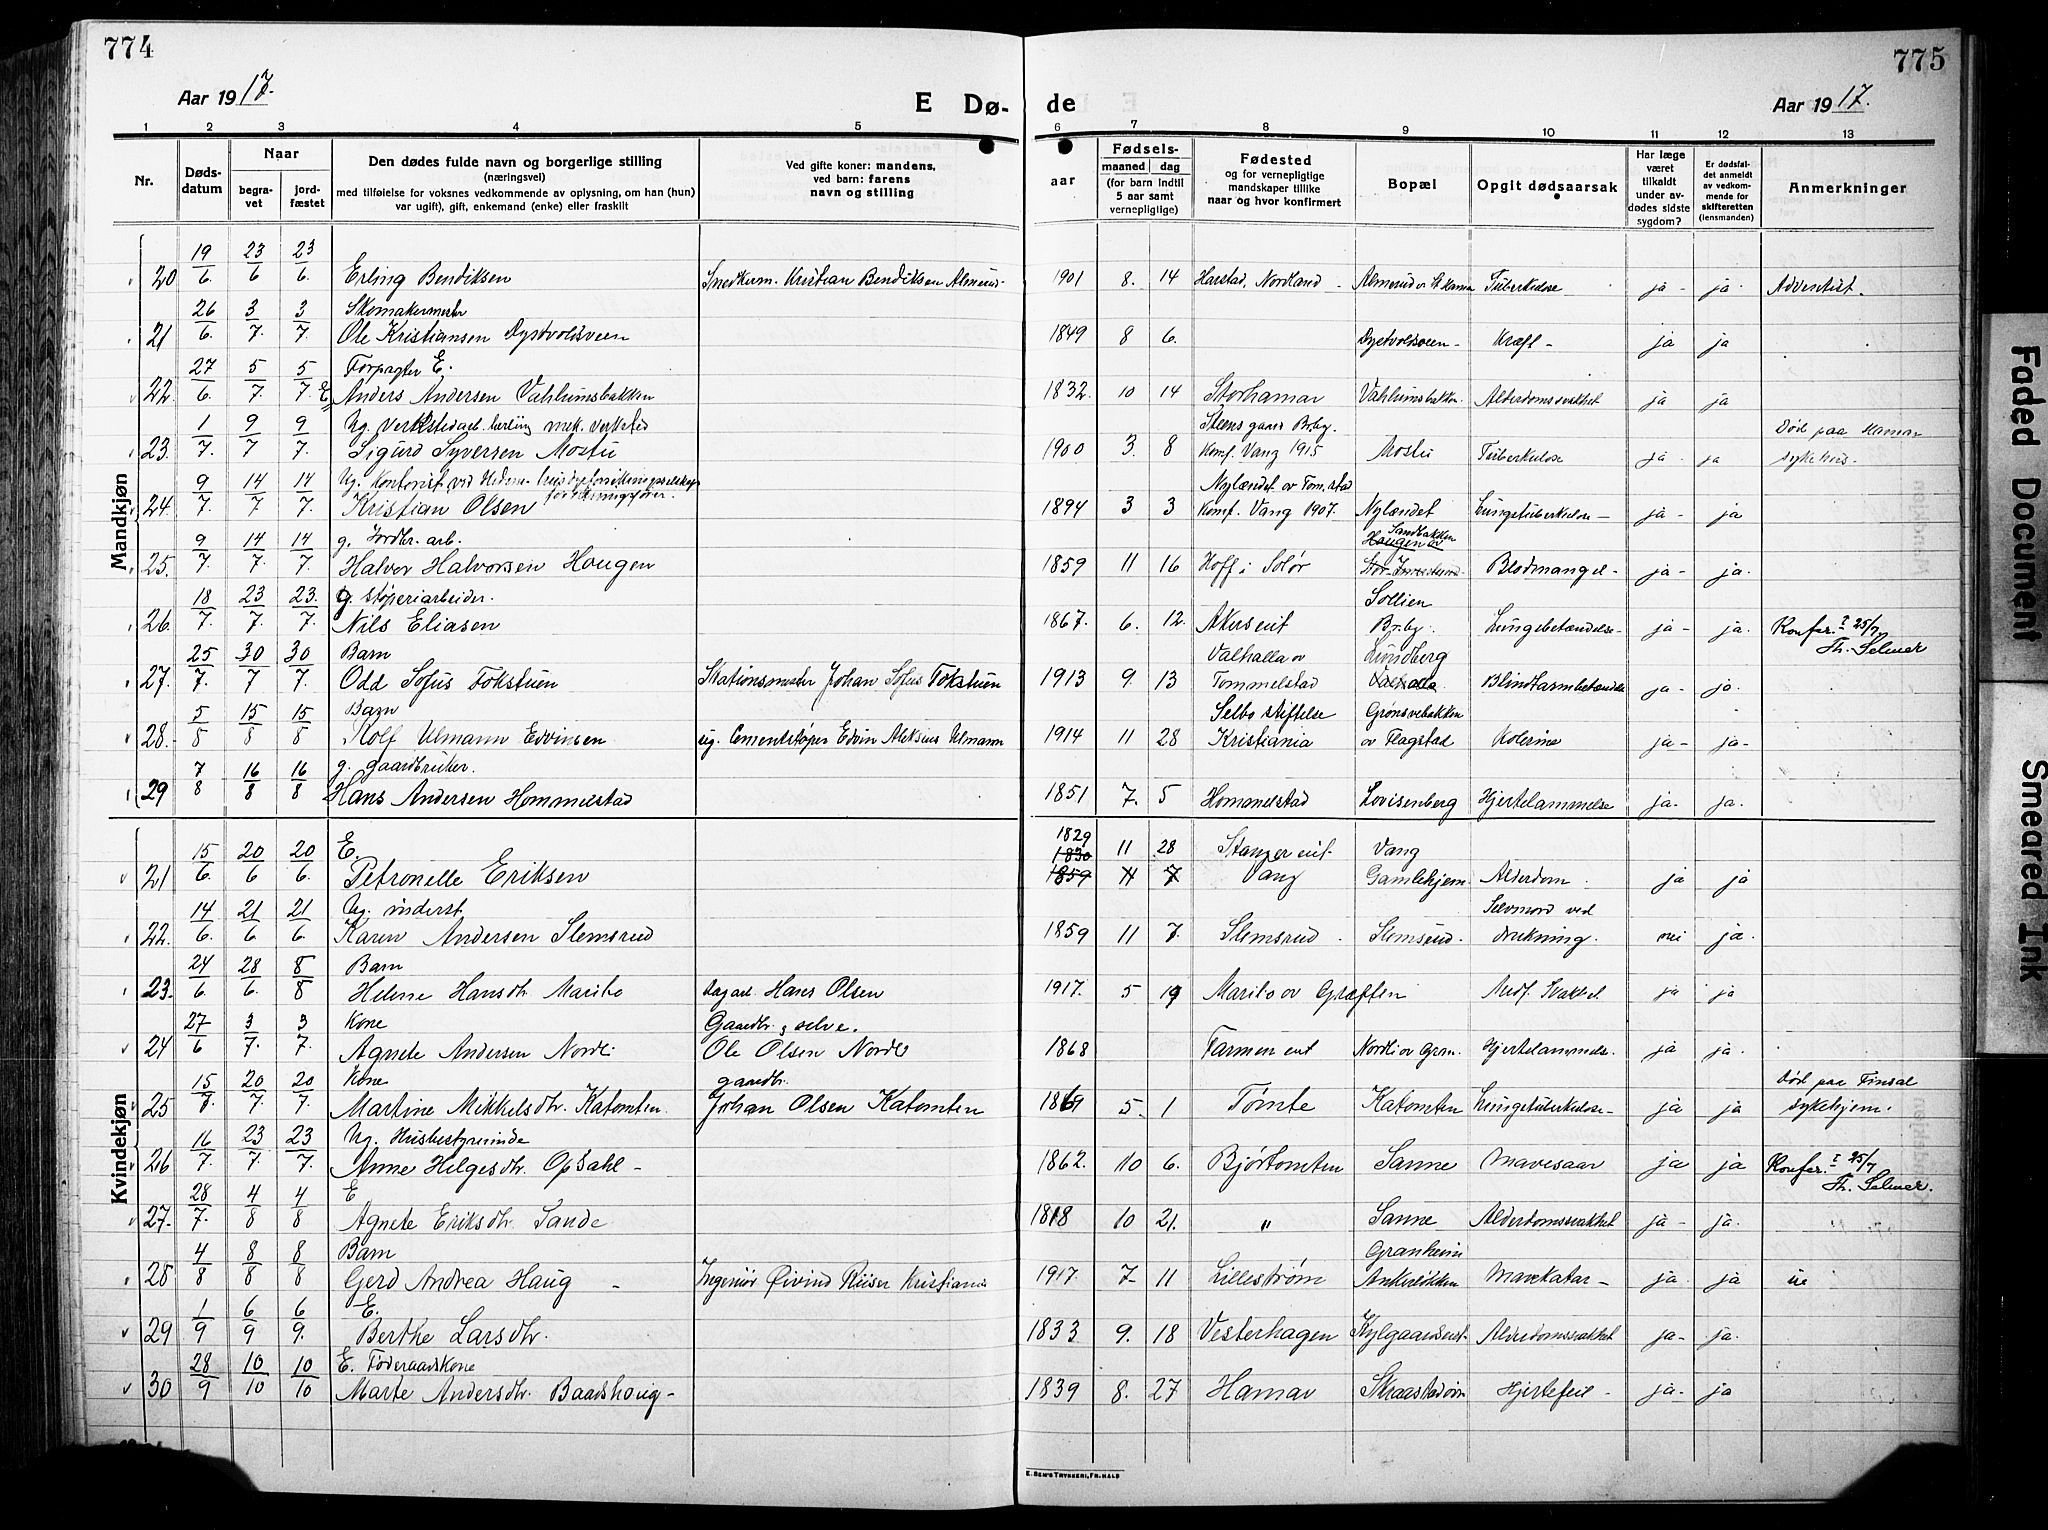 774
775
Aar 1917.
E Dø-
de
Aar 1917.
1 2 3 4 5 6 7 8 9 10 11 12 13
Nr.
Døds-
datum
Naar
begra-
vet
jord-
fæstet
Den dødes fulde navn og borgerlige stilling
(næringsvei)
med tilføielse for voksnes vedkommende av oplysning, om han (hun)
var ugift), gift, enkemand (enke) eller fraskilt
Ved gifte koner: mandens,
ved barn: farens
navn og stilling
aar
Fødsels-
maaned dag
(for barn indtil
5 aar samt
vernepligtige)
Fødested
og for vernepligtige
mandskaper tillike
naar og hvor konfirmert
Bopæl
Opgit dødsaarsak
Har læge
været
tilkaldt
under av-
dødes sidste
sygdom?
Er dødsfal-
det anmeldt
av vedkom-
mende for
skifteretten
(lensmanden)
Anmerkninger
Mandkjøn
20 19/6 23/6 23/6. Erling Bendiksen Snedkerm. Kristian Bendiksen Almerud. 1901 8. 14 Harstad, Nordland Almerud Tuberkulose ja ja Adventist.
Skomakermester
21 26/6. 3/7. 3/7. Ole Kristiansen Dystvoldsveen 1849 8 6. Dystvoldsveen Kræft ja ja
Forpagter E.
22. 27/6. 5/7. 5/7. Anders Andersen Vahlumsbakken 1832. 10 14 Storhamar Vahlumsbakken Alderdomssvakhet ja ja
Ug. verkstedarb. lærling mek. verksted Steens gaard Brby. Død paa Hamar
23. 1/7. 9/7 9/7. Sigurd Syversen Mostu 1900 3. 8 Konf. Vang 1915 Mostu Tuberkulose ja ja sykehus.
Ug. Kontorist ved Nylændet av Tom.stad
24. 9/7. 14/7 14/7. Kristian Olsen 1894 3 3 Konf. Vang 1907. Nylændet Lungetuberkulose ja ja
g. Jordbr. arb. Sandbakken
25. 9/7. 14/7. 14/7. Halvor Halvorsen Haugen 1859 11 16 Hoff i Solør Haugen av Blodmangel ja ja.
g. støperiarbeider. Sollien
26. 18/7. 23/7. 23./7. Nils Eliasen 1867. 6. 12. Akerseiet Brby. Lungebetændelse ja ja. Konfer. 25/7 Th. Selmer
Barn Valhalla av Lundberg
27. 25/7. 30/7 30/7. Odd Sofus Fokstuen Stationsmester Johan Sofus Fokstuen 1913 9. 13 Tommelstad Valhalla Blindtarmbetændelse ja ja.
Barn Selbo stiftelse Grønsvebakken
28. 5/8 15/8 15/8 Rolf Ulmann Edvinsen ug. Cementstøper Edvin Aleksius Ulmann 1914 11 28 Kristiania av Flagstad Kolerine ja ja
g. gaardbruker.
29 7/8 16/8 16/8 Hans Andersen Hommelstad 1851 7. 5 Hommelstad Lovisenberg Hjertelammelse ja. ja.
Kvindekjøn
E. 1829 1830 11 28 Stanger eiet Vang
21 15/6. 20/6 20/6. Petronelle Eriksen 1859 11 7 Vang Gamlehjem Alderdom ja ja
Ug. inderst. Selvmord ved
22. 14/6. 21/6. 21/6. Karen Andersen Slemsrud 1859 11 7. Slemsrud Slemsrud. drukning. nei ja.
Barn
23. 24/6. 28/6. 8/8 Helene Hansdtr. Maribo dagarb. Hans Olsen 1917. 5 19 Maribo av Græften Medf. Svakhet. ja ja
Kone Gaardbr. selve.
24 27/6 3/7. 3/7. Agnete Andersen Nordli Ole Olsen Nordli 1868 Farmen eiet Nordli av Grøn. Hjertelammelse. ja ja.
Kone gaardbr. Død paa Finsal
25 15/7. 20/7. 20/7. Martine Mikkelsdtr. Katomten. Johan Olsen Katomten 1869 5. 1 Tømte Katomten Lungetuberkulose ja ja sykehjem.
Ug. Husbestyrerinde
26 16/7. 23/7. 23/7. Anne Helgesdtr. Opsahl 1862. 10 6. Bjørtomten Sanne Mavesaar ja ja Konfer. 25/7 Th. Selmer.
E
27. 28/7. 4/8 4/8 Agnete Eriksdtr. Sande 1818 10 21. " Sanne Alderdomssvakhet ja ja.
Barn Granheim
28 4/8 8/8 8/8 Gerd Andrea Haug Ingeniør Øivind Riiser Kristiania 1917. 7 11 Lillestrøm Ankerløkken Mavekatar ja. ja ue
E.
29 1/9 6/9 6/9. Berthe Larsdtr. 1833 9. 18 Vesterhagen Kylgaardseiet Alderdomssvakhet ja ja.
E. Føderaadskone
30 28/9 10/10 10/10 Marte Andersdtr. Baadshoug 1839 8. 27 Hamar Skraastadøn Hjertefeil ja ja
E. SEM'S TRYKKERI, FR.HALD
Faded Document
Smeared Ink